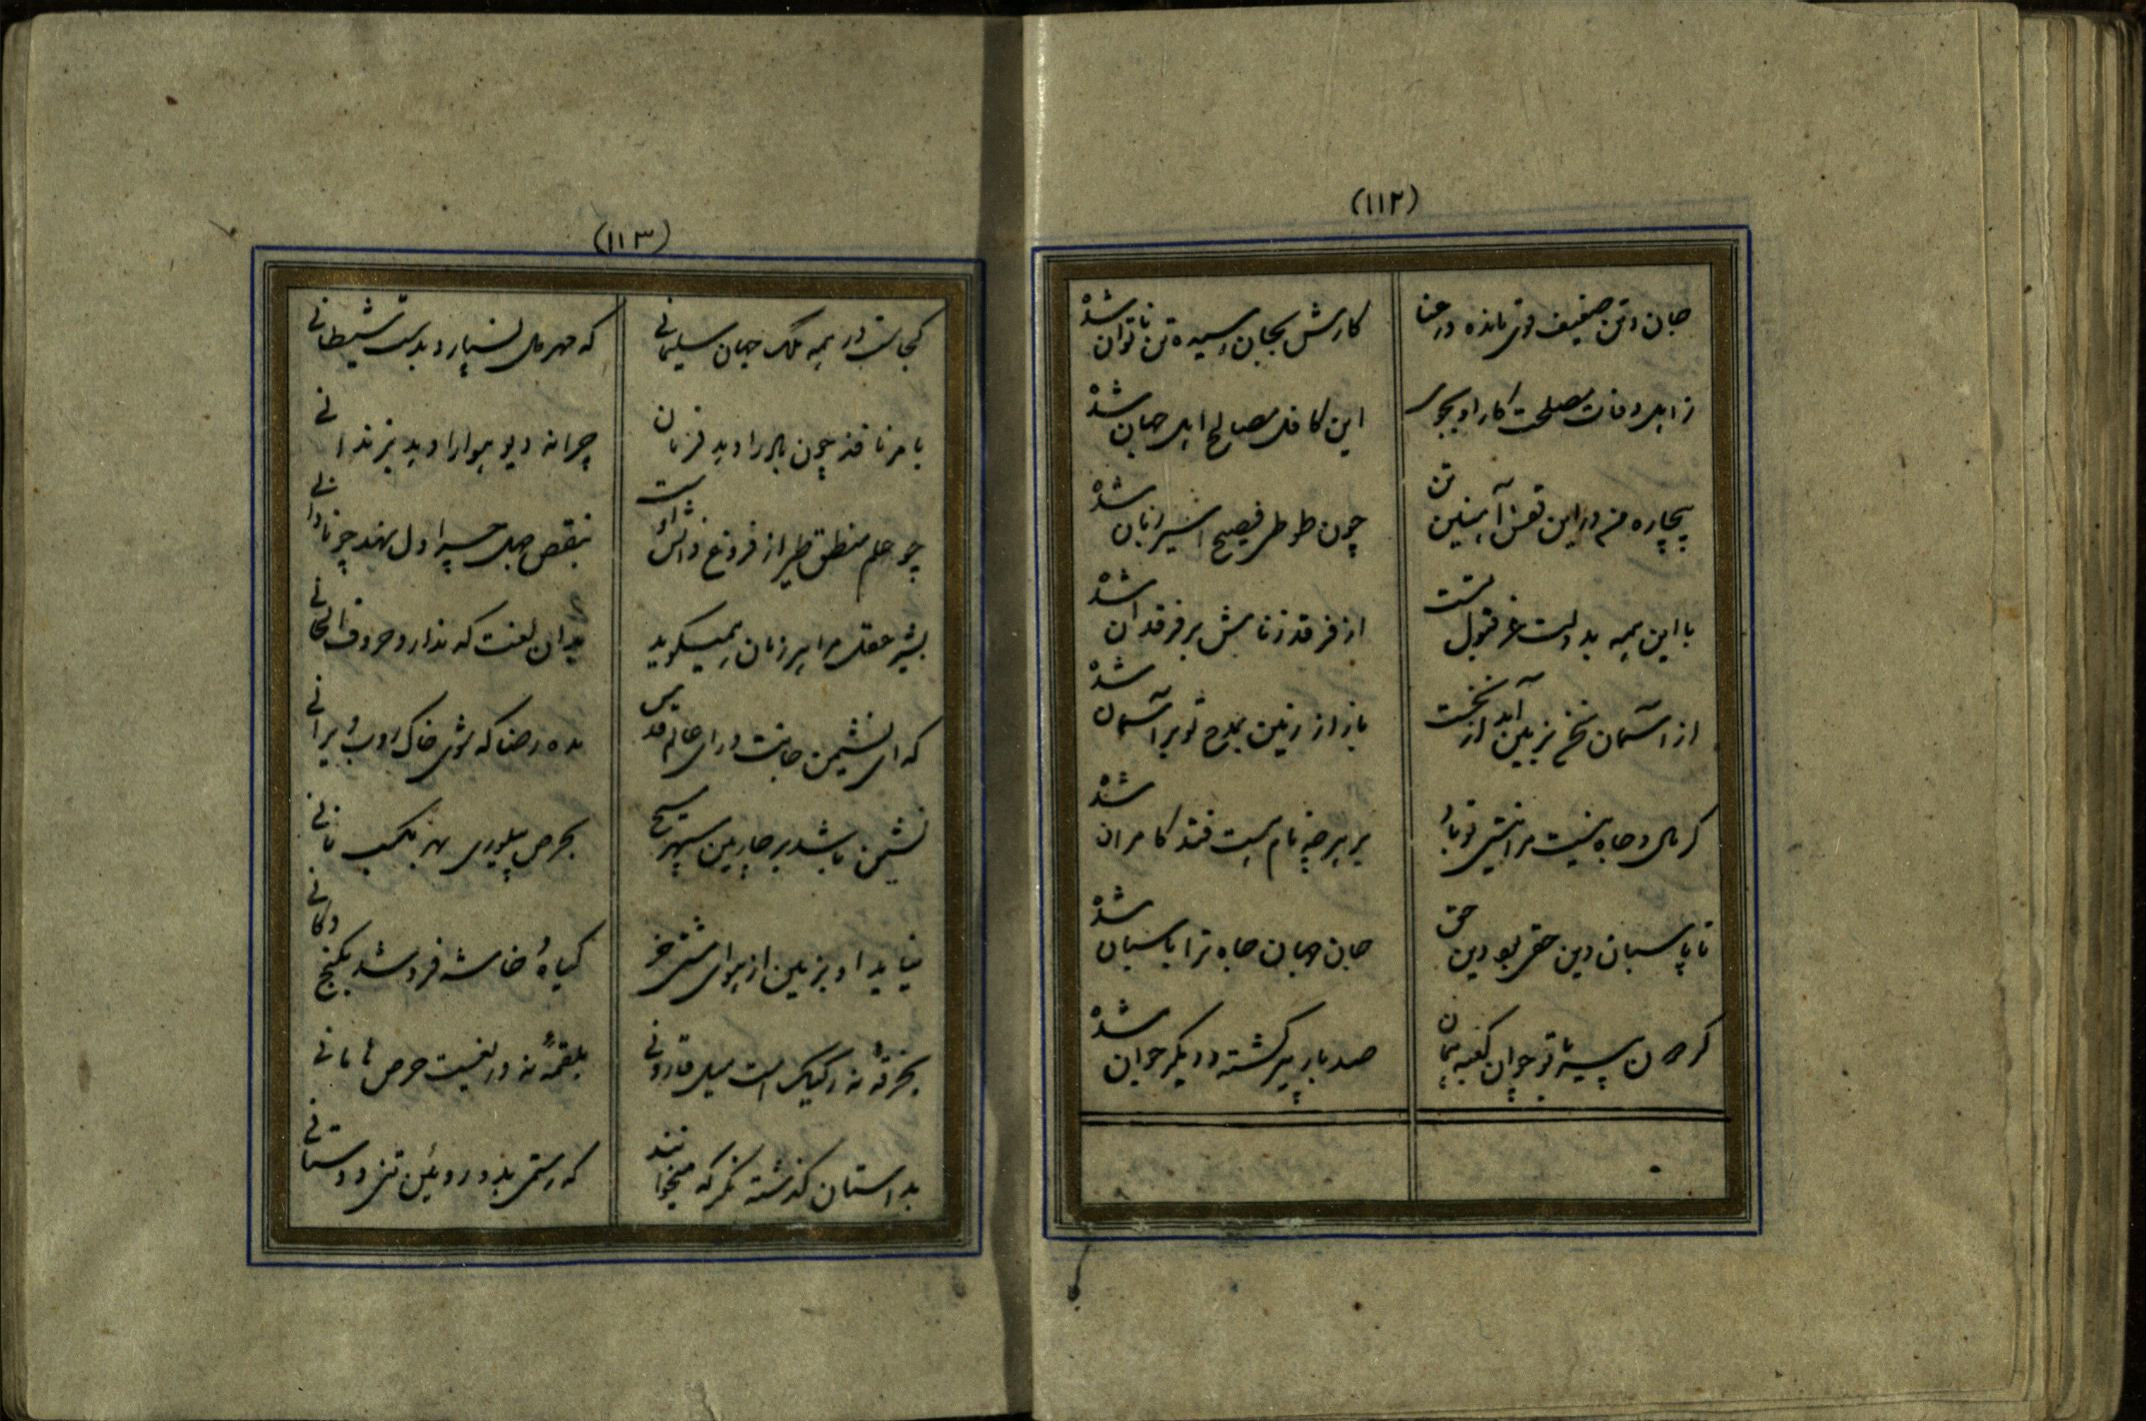 (۱۱۲)
جان و تن ضعیف وی مانده در عنا
کارش بجان رسیده تن ناتوان شده
ز اهل وفات مصلحت کار او بجوی
این کافل مصالح اهل جهان شده
بیچاره من در این قفس آهنین تن
چون طوطی فصیح اسیر زبان شده
با این همه بدولت عز قبول تست
از فرقد ز تابش بر فرقدان شده
از آسمان بر زمین آید از نخست
باز از زمین بمدح تو بر آسمان شده
گر مال و جاه نیست مرا نیستی تو باد
بر هر چه نام هست فتد کامران شده
تا پاسبان دین حقی بود دین حق
جان جهان جاه ترا پاسبان شده
گر جهان پیر با تو جوان
صد بار پیر گشته و دیگر جوان شده
(۱۱۳)
کجاست در همه ملک جهان سلیمانی
که مهر دل نسپارد بدست شیطانی
بامر نافذ چون باد را دهد فرمان
چرا نه دیو هوا را دهد بزندانی
چو علم منطق طیر از فروغ دانش اوست
بنقص جهل چرا دل نهد چو نادانی
بشیر عقل مرا هر زمان همیگوید
بدان لغت که ندارد حروف الحانی
که ای نشیمن جانت ورای عالم قدس
مده رضا که شوی خاکروب ایرانی
نشیمن باشد بر چارمین سپهر مسیح
بحرص پیلوری نه بکسب نانی
نیاید او بزمین از هوای مشتی خر
گیاه خاشه فروشد بکنج دکانی
بخرقه نه رکیک است میل قارونی
بلقمه نه دریغست حرص هامانی
بداستان گذشته نگر که میخوانند
که رستمی بد و روئین تنی و دستانی